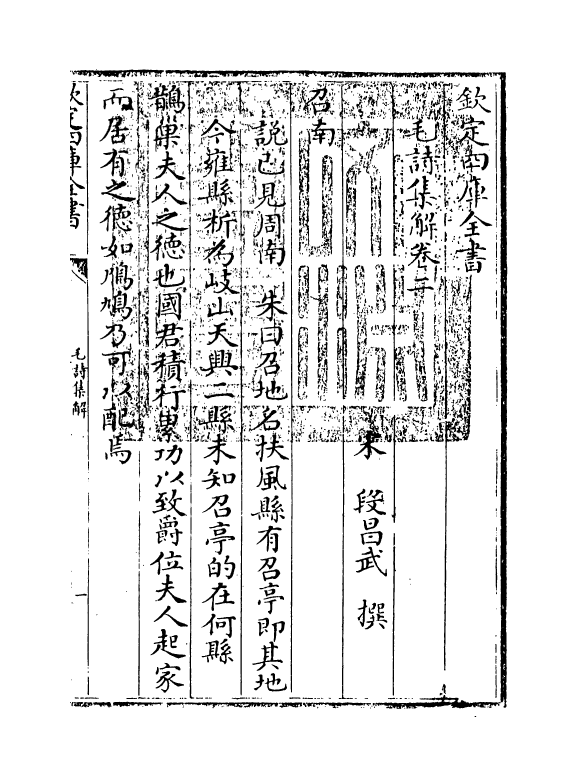 欽定四庫全書
毛詩集解卷二
宋 段昌武 撰
召南
説已見周南 朱曰召地名扶風縣有召亭即其地
今雍縣析為岐山天興二縣未知召亭的在何縣
鵲巢夫人之徳也國君積行累功以致爵位夫人起家
而居有之徳如鳲鳩乃可以配焉
欽定四庫全書
毛詩集解
一